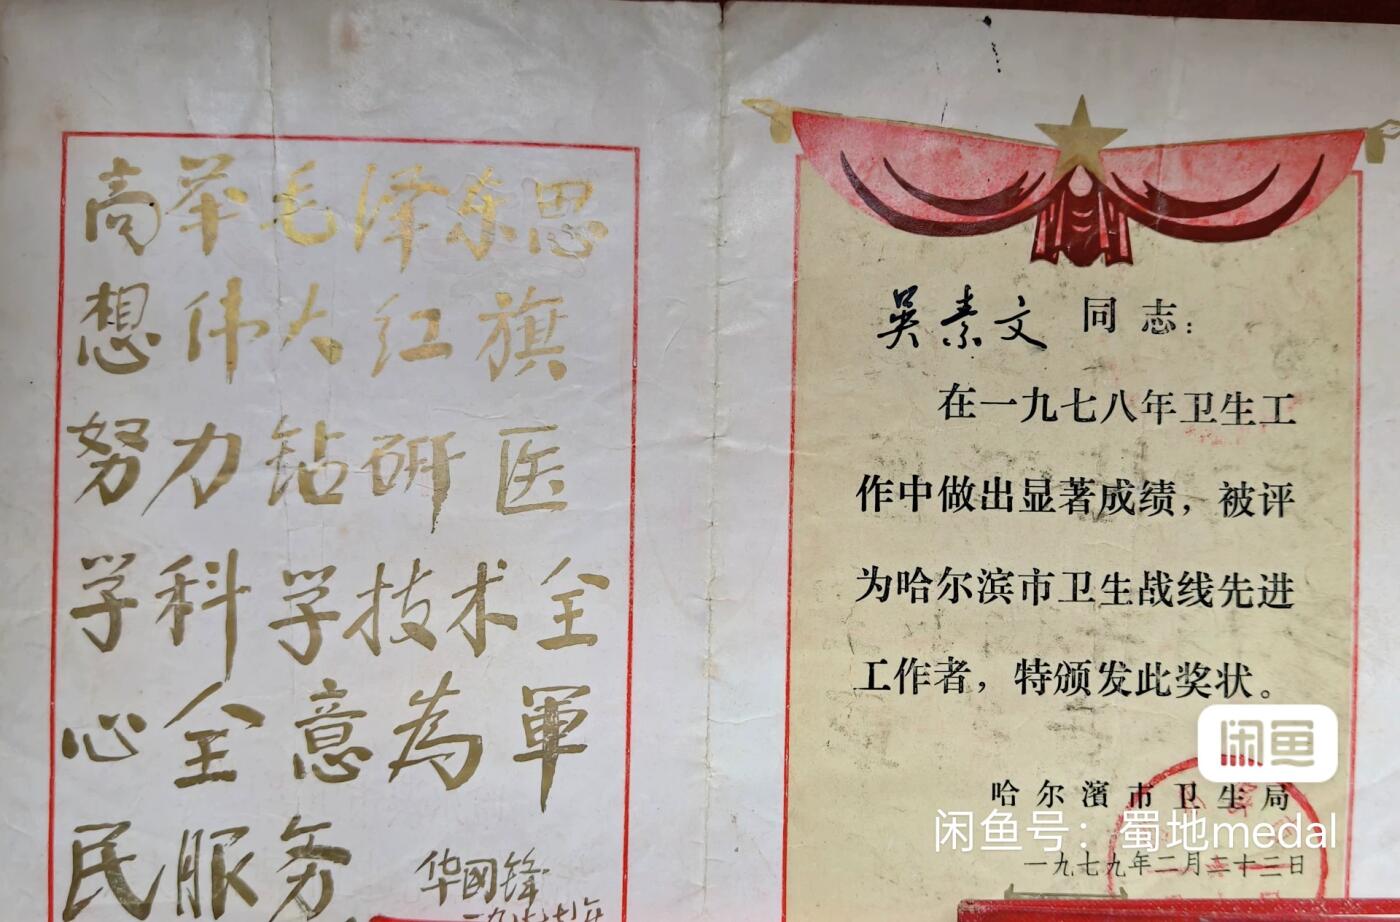 高举毛泽东思
想伟大红旗
努力钻研医
学科学技术全
心全意為軍
民服务
华國锋
吴素文同志：
在一九七八年卫生工
作中做出显著成绩，被评
为哈尔滨市卫生战线先进
工作者，特颁发此奖状。
闲鱼
哈尔濱市卫生局
闲鱼号：蜀地medal
一九七九年二月二十二日